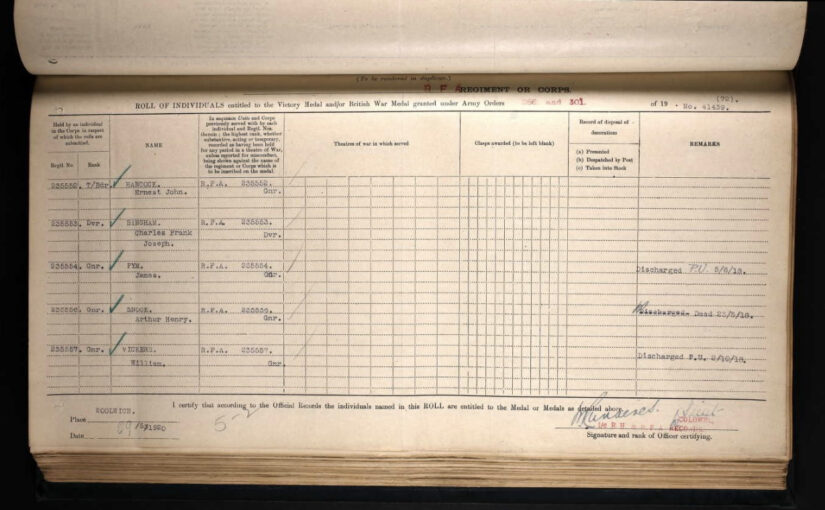 (To be rendered in duplicate.)
R F A REGIMENT OR CORPS.
(72).
ROLL OF INDIVIDUALS entitled to the Victory Medal and/or British War Medal granted under Army Orders 266 and 301. of 19 . No. 41439.
Held by an individual in the Corps in respect of which the rolls are submitted.
Regtl. No. Rank
NAME
In sequence Units and Corps previously served with by each individual and Regtl. Nos. therein; the highest rank, whether substantive, acting or temporary, recorded as having been held for any period in a theatre of War, unless reported for misconduct, being shown against the name of the regiment or Corps which is to be inscribed on the medal
Theatres of war in which served
Clasps awarded (to be left blank)
Record of disposal of decorations
(a) Presented
(b) Despatched by Post
(c) Taken into Stock
REMARKS
235552. T/Bdr. R.F.A. 235552.
Ernest John. Gnr.
235553. Dvr. BINGHAM. R.F.A 235553.
Charles Frank Dvr.
Joseph.
235554. Gnr. PYM. R.F.A. 235554. Discharged P.U. 5/6/18.
James. Gnr.
Gnr. SNOOK. R.F.A. Discharged. Dead 23/5/18.
Arthur Henry. Gnr.
235557. Gnr. VICKERS. R.F.A. 235557. Discharged P.U. 2/10/18.
William. Gnr.
I certify that according to the Official Records the individuals named in this ROLL are entitled to the Medal or Medals as detailed above.
Place WOOLWICH.
5-2
Date 1920
COLONEL
I/c R H & R F A RECORDS
Signature and rank of Officer certifying.